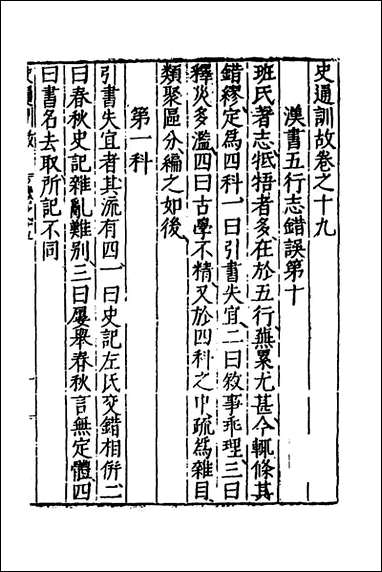 史通訓故卷之十九
漢書五行志錯誤第十
班氏著志牴牾者多在於五行蕪累尤甚今輒條其
錯繆定為四科一曰引書失宜二曰敘事乖理三曰
釋災多濫四曰古學不精又於四科之中疏為雜目
類聚區分編之如後
第一科
引書失宜者其流有四一曰史記左氏交錯相併二
曰春秋史記雜亂難別三曰屢舉春秋言無定體四
曰書名去取所記不同
史通訓故